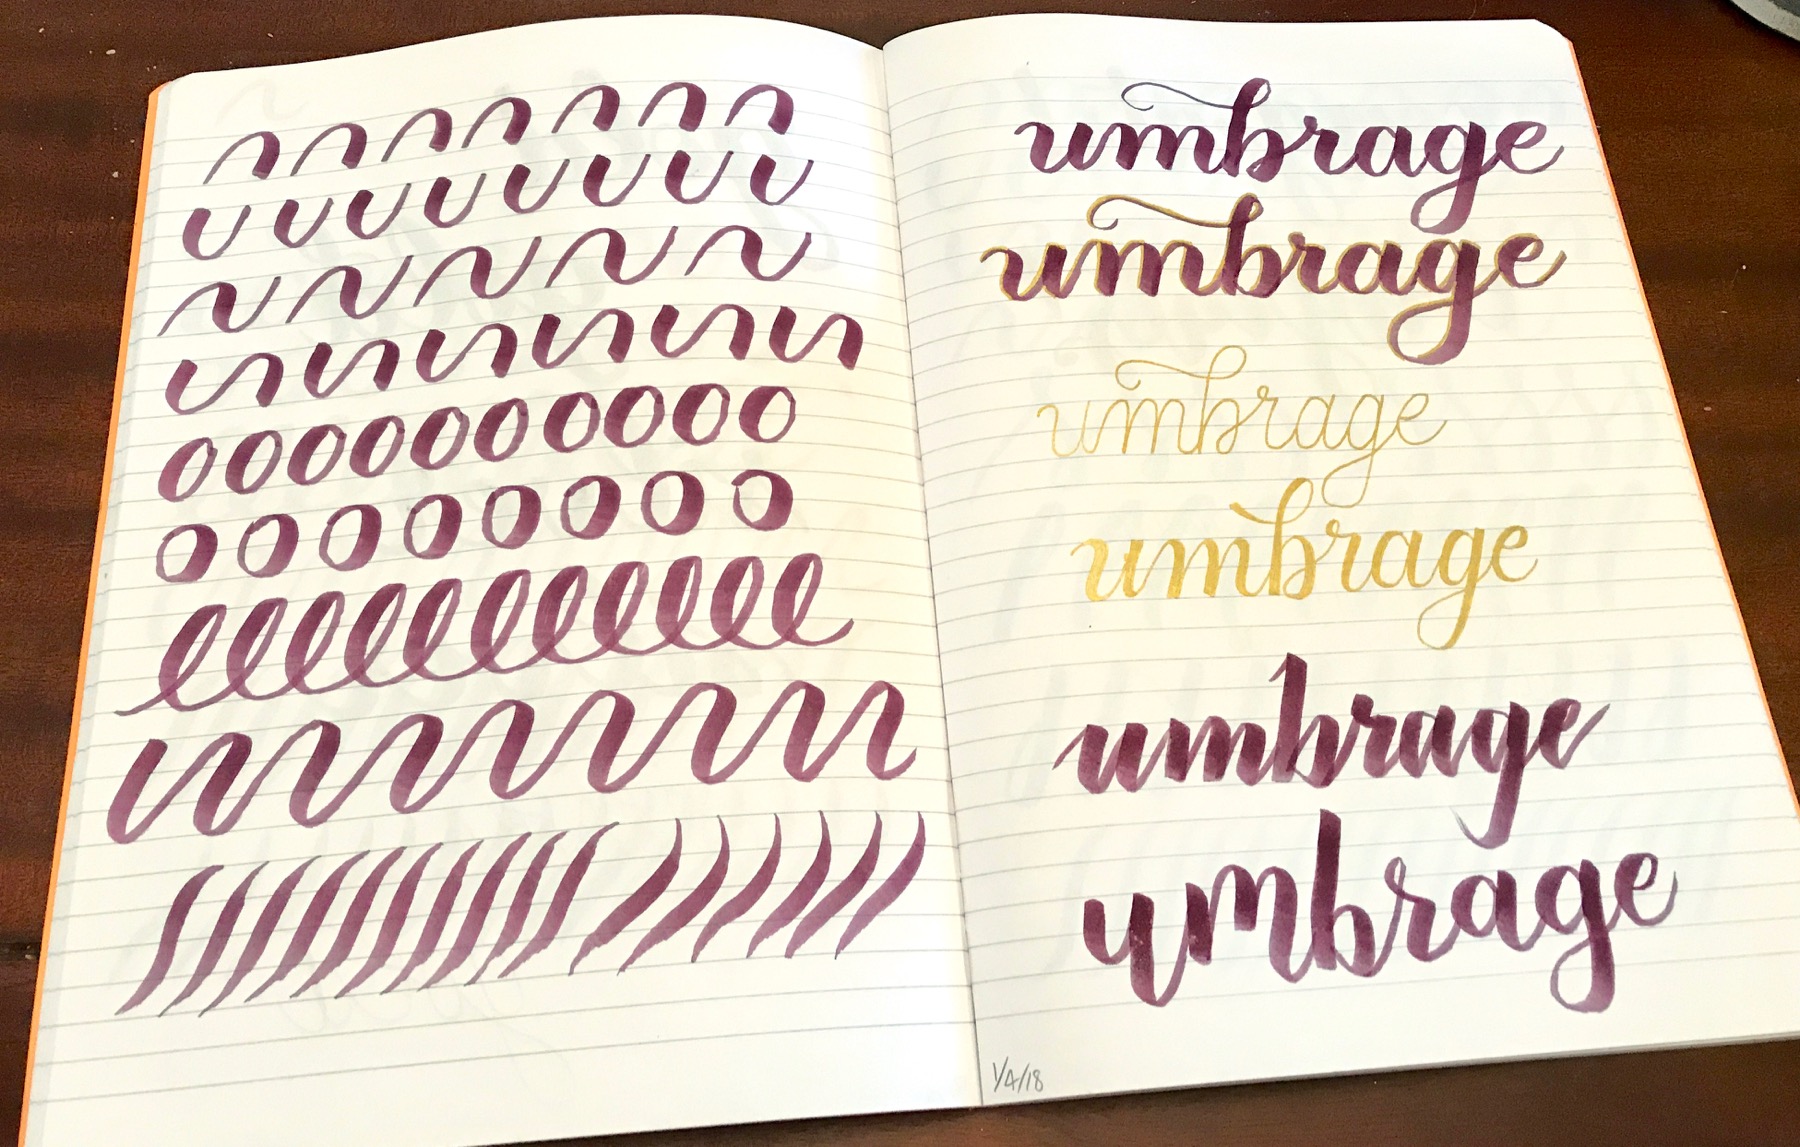 umbrage
umbrage
umbrage
umbrage
umbrage
umbrage
1/4/18